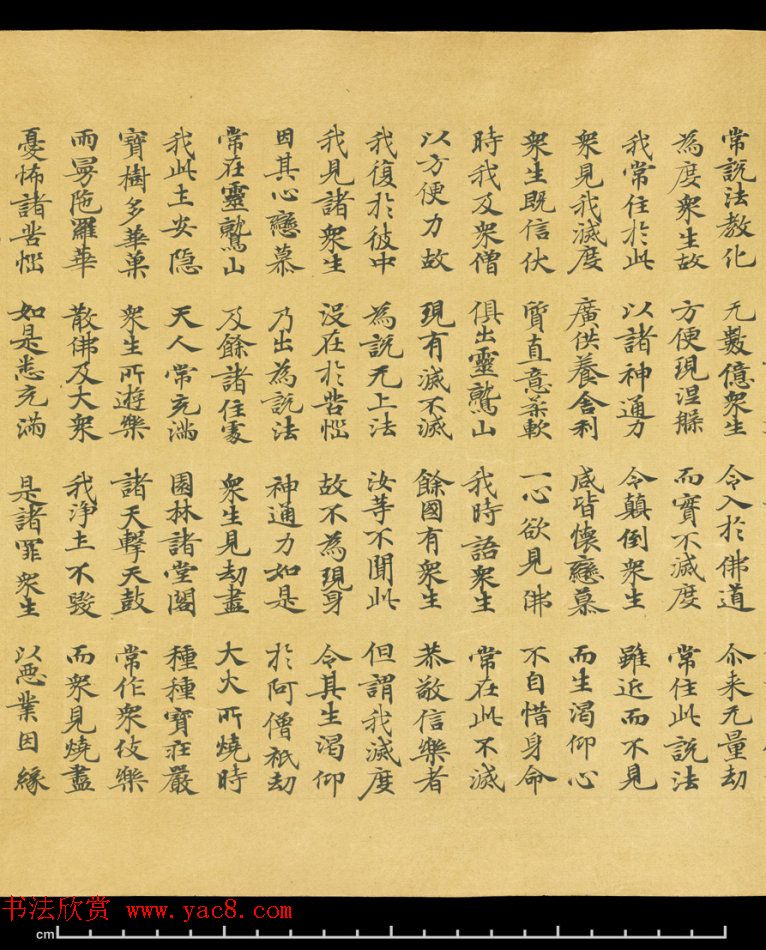 常說法教化 无數億眾生 令入於佛道 尒来无量劫
為度眾生故 方便現涅槃 而實不滅度 常住此說法
我常住於此 以諸神通力 令顛倒眾生 雖近而不見
眾見我滅度 廣供養舍利 咸皆懷戀慕 而生渴仰心
眾生既信伏 質直意柔軟 一心欲見佛 不自惜身命
時我及眾僧 俱出靈鷲山 我時語眾生 常在此不滅
以方便力故 現有滅不滅 餘國有眾生 恭敬信樂者
我復於彼中 為說无上法 汝等不聞此 但謂我滅度
我見諸眾生 沒在於苦惱 故不為現身 令其生渴仰
因其心戀慕 乃出為說法 神通力如是 於阿僧祇劫
常在靈鷲山 及餘諸住處 眾生見劫盡 大火所燒時
我此土安隱 天人常充滿 園林諸堂閣 種種寶莊嚴
寶樹多華菓 眾生所遊樂 諸天擊天鼓 常作眾伎樂
雨曼陀羅華 散佛及大眾 我淨土不毀 而眾見燒盡
憂怖諸苦惱 如是悉充滿 是諸罪眾生 以惡業因緣
书法欣赏 www.yac8.com
cm